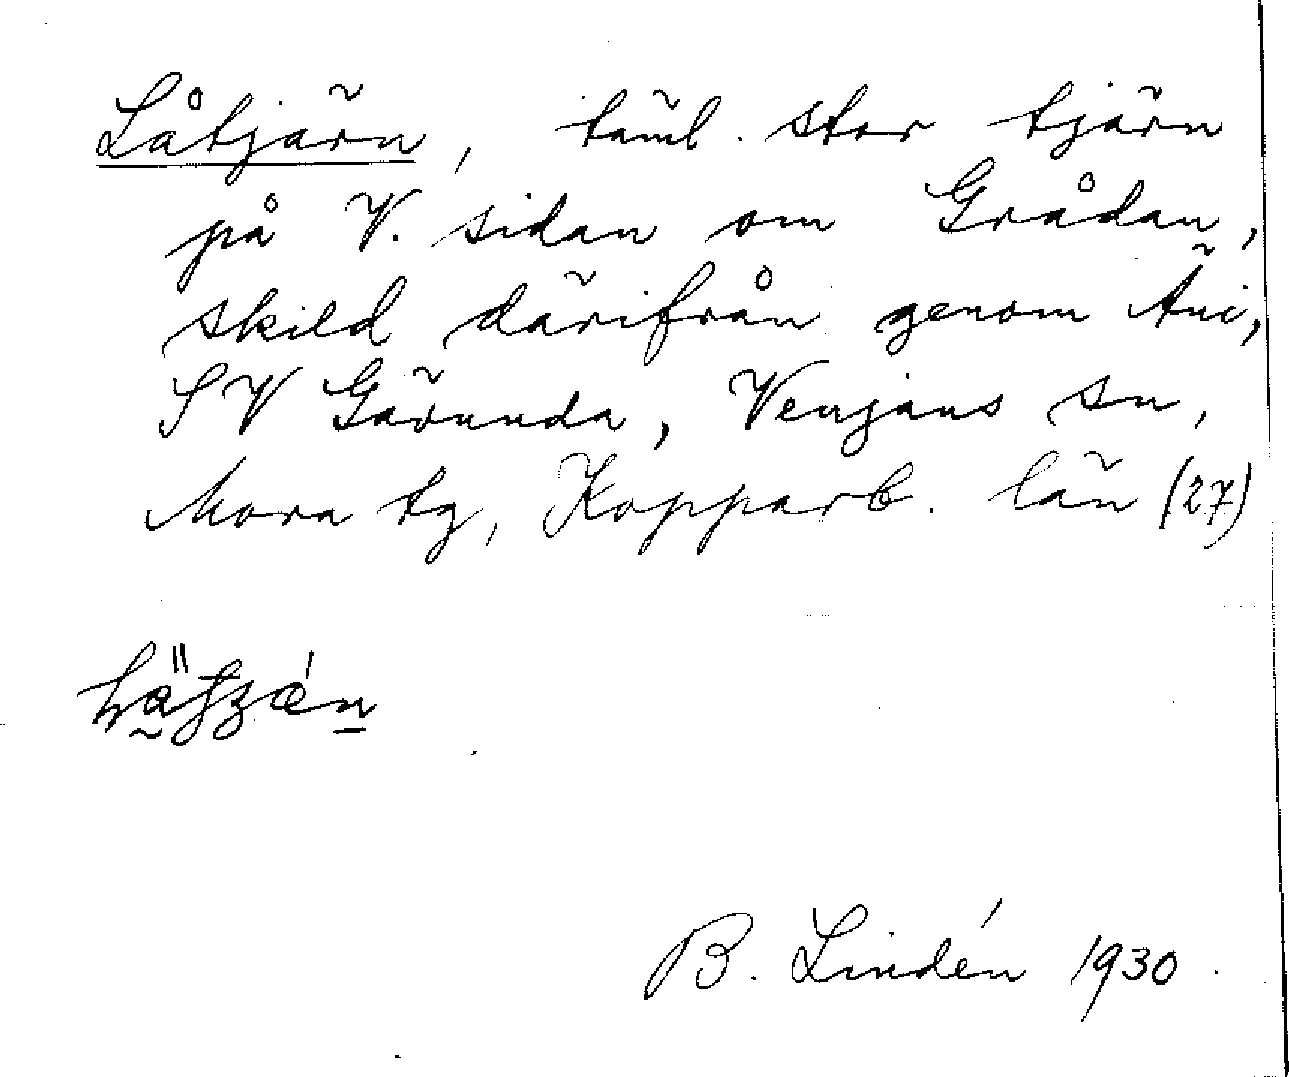 Låtjärn, täml. stor tjärn
på V. sidan om Grådan,
skild därifrån genom Äni,
SV Gärunda, Venjans sn,
Mora tg, Kopparb. län (27)
B. Lindén 1930